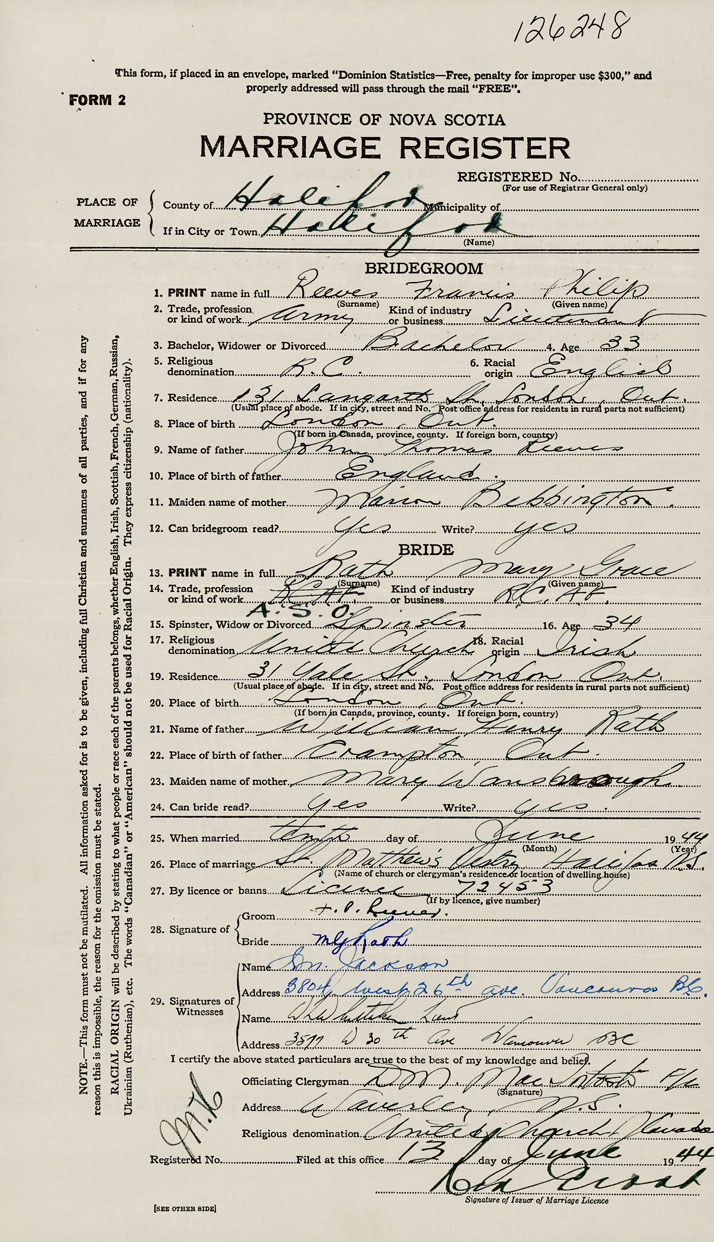 126248
This form, if placed in an envelope, marked "Dominion Statistics—Free, penalty for improper use $300," and
properly addressed will pass through the mail "FREE".
FORM 2
PROVINCE OF NOVA SCOTIA
MARRIAGE REGISTER
REGISTERED No.
(For use of Registrar General only)
PLACE OF MARRIAGE
County of Halifax Municipality of
If in City or Town Halifax
(Name)
BRIDEGROOM
1. PRINT name in full Reeves Francis Philip
(Surname) (Given name)
2. Trade, profession or kind of work Army Kind of industry or business Lieutenant
3. Bachelor, Widower or Divorced Bachelor 4. Age 33
5. Religious denomination R.C. 6. Racial origin English
7. Residence 131 Langarth St. London, Ont.
(Usual place of abode. If in city, street and No. Post office address for residents in rural parts not sufficient)
8. Place of birth London, Ont.
(If born in Canada, province, county. If foreign born, country)
9. Name of father John Thomas Reeves
10. Place of birth of father England.
11. Maiden name of mother Marion Bebbington.
12. Can bridegroom read? yes Write? yes
BRIDE
13. PRINT name in full Rath Mary Grace
(Surname) (Given name)
14. Trade, profession or kind of work R.C.A.F. Kind of industry or business R.C.A.F.
A.S.O.
15. Spinster, Widow or Divorced Spinster 16. Age 34
17. Religious denomination United Church 18. Racial origin Irish
19. Residence 31 Yale St., London Ont.
(Usual place of abode. If in city, street and No. Post office address for residents in rural parts not sufficient)
20. Place of birth London, Ont.
(If born in Canada, province, county. If foreign born, country)
21. Name of father William Henry Rath
22. Place of birth of father Crampton, Ont.
23. Maiden name of mother Mary Wansbrough.
24. Can bride read? yes Write? yes.
25. When married tenth day of June 1944
(Month) (Year)
26. Place of marriage St. Matthew's Vestry Halifax N.S.
(Name of church or clergyman's residence or location of dwelling house)
27. By licence or banns Licence 72453
(If by licence, give number)
28. Signature of
Groom F. P. Reeves.
Bride MG Rath
29. Signatures of Witnesses
Name Jackson
Address 3804 West 26th ave. Vancouver B.C.
Name
Address 3577 W 30th Ave Vancouver BC
I certify the above stated particulars are true to the best of my knowledge and belief.
Officiating Clergyman D.M. MacIntosh F/L
(Signature)
Address Waverley, N.S.
Religious denomination United Church / Canada
Registered No. Filed at this office 13 day of June 1944
Signature of Issuer of Marriage Licence
[SEE OTHER SIDE]
NOTE.—This form must not be mutilated. All information asked for is to be given, including full Christian and surnames of all parties, and if for any
reason this is impossible, the reason for the omission must be stated.
RACIAL ORIGIN will be described by stating to what people or race each of the parents belongs, whether English, Irish, Scottish, French, German, Russian,
Ukrainian (Ruthenian), etc. The words "Canadian" or "American" should not be used for Racial Origin. They express citizenship (nationality).